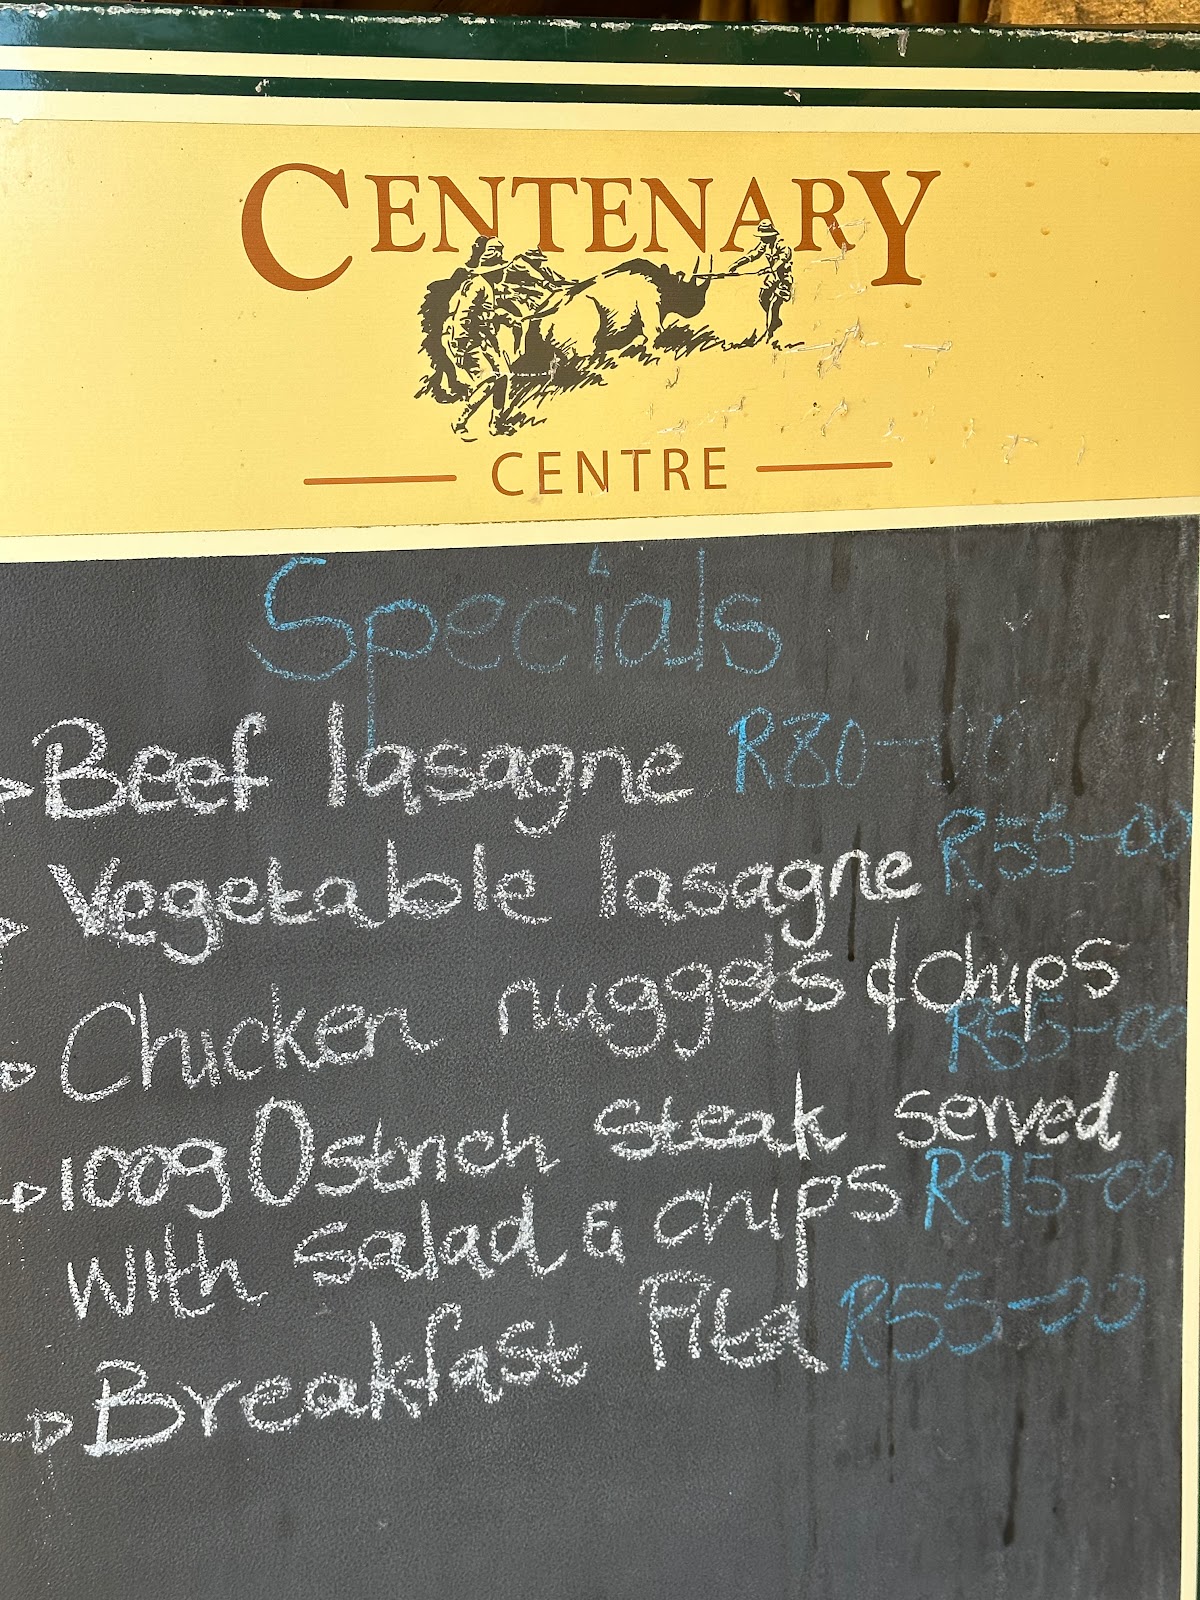 CENTENARY
CENTRE
Specials
Beef lasagne R80-00
Vegetable lasagne R55-00
Chicken nuggets & chips
R55-00
100g Ostrich steak served
with salad & chips R95-00
Breakfast Pita R55-00